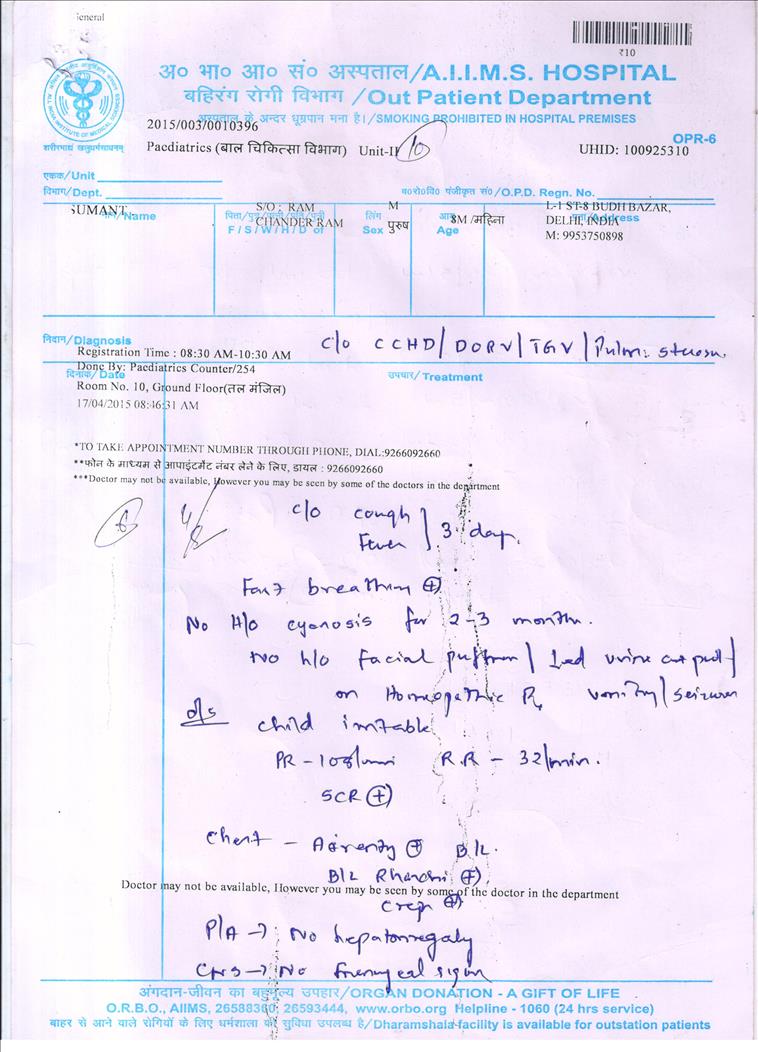 General
₹10
अ० भा० आ० सं० अस्पताल/A.I.I.M.S. HOSPITAL
बहिरंग रोगी विभाग /Out Patient Department
अस्पताल के अन्दर धूम्रपान मना है।/SMOKING PROHIBITED IN HOSPITAL PREMISES
2015/003/0010396
OPR-6
शरीरमाद्यं खलुधर्मसाधनम्
Paediatrics (बाल चिकित्सा विभाग) Unit-II
UHID: 100925310
एकक/Unit
विभाग/Dept.
ब०रो०वि० पंजीकृत सं०/O.P.D. Regn. No.
SUMANT
नाम/Name
S/O : RAM CHANDER RAM
F / S / W / H / D of
M
लिंग
Sex पुरुष
8M /महिना
Age
L-1 ST-8 BUDH BAZAR,
DELHI, INDIA
पता/Address
M: 9953750898
निदान/Diagnosis
c/o CCHD/DORV/TGV/Pulm:
Registration Time : 08:30 AM-10:30 AM
Done By: Paediatrics Counter/254
दिनांक/Date
उपचार/Treatment
Room No. 10, Ground Floor(तल मंजिल)
17/04/2015 08:46:31 AM
*TO TAKE APPOINTMENT NUMBER THROUGH PHONE, DIAL:9266092660
**फोन के माध्यम से आपाइंटमेंट नंबर लेने के लिए, डायल : 9266092660
***Doctor may not be available, However you may be seen by some of the doctors in the department
c/o cough
Fever } 3 day.
Fast breathing (+)
No H/o cyanosis for 2-3 months.
No h/o facial puffiness/ urine output/
on Homeopathic Rx vomiting/seizures
o/s
child irritable
PR - 108/min R.R - 32/min.
SCR (+)
Chest - (+) B/L.
B/L Rhonchi (+)
Doctor may not be available, However you may be seen by some of the doctor in the department
crep (+)
P/A → No hepatomegaly
CNS → No meningeal sign
अंगदान-जीवन का बहुमूल्य उपहार/ORGAN DONATION - A GIFT OF LIFE
O.R.B.O., AIIMS, 26588360, 26593444, www.orbo.org Helpline - 1060 (24 hrs service)
बाहर से आने वाले रोगियों के लिए धर्मशाला की सुविधा उपलब्ध है/Dharamshala facility is available for outstation patients